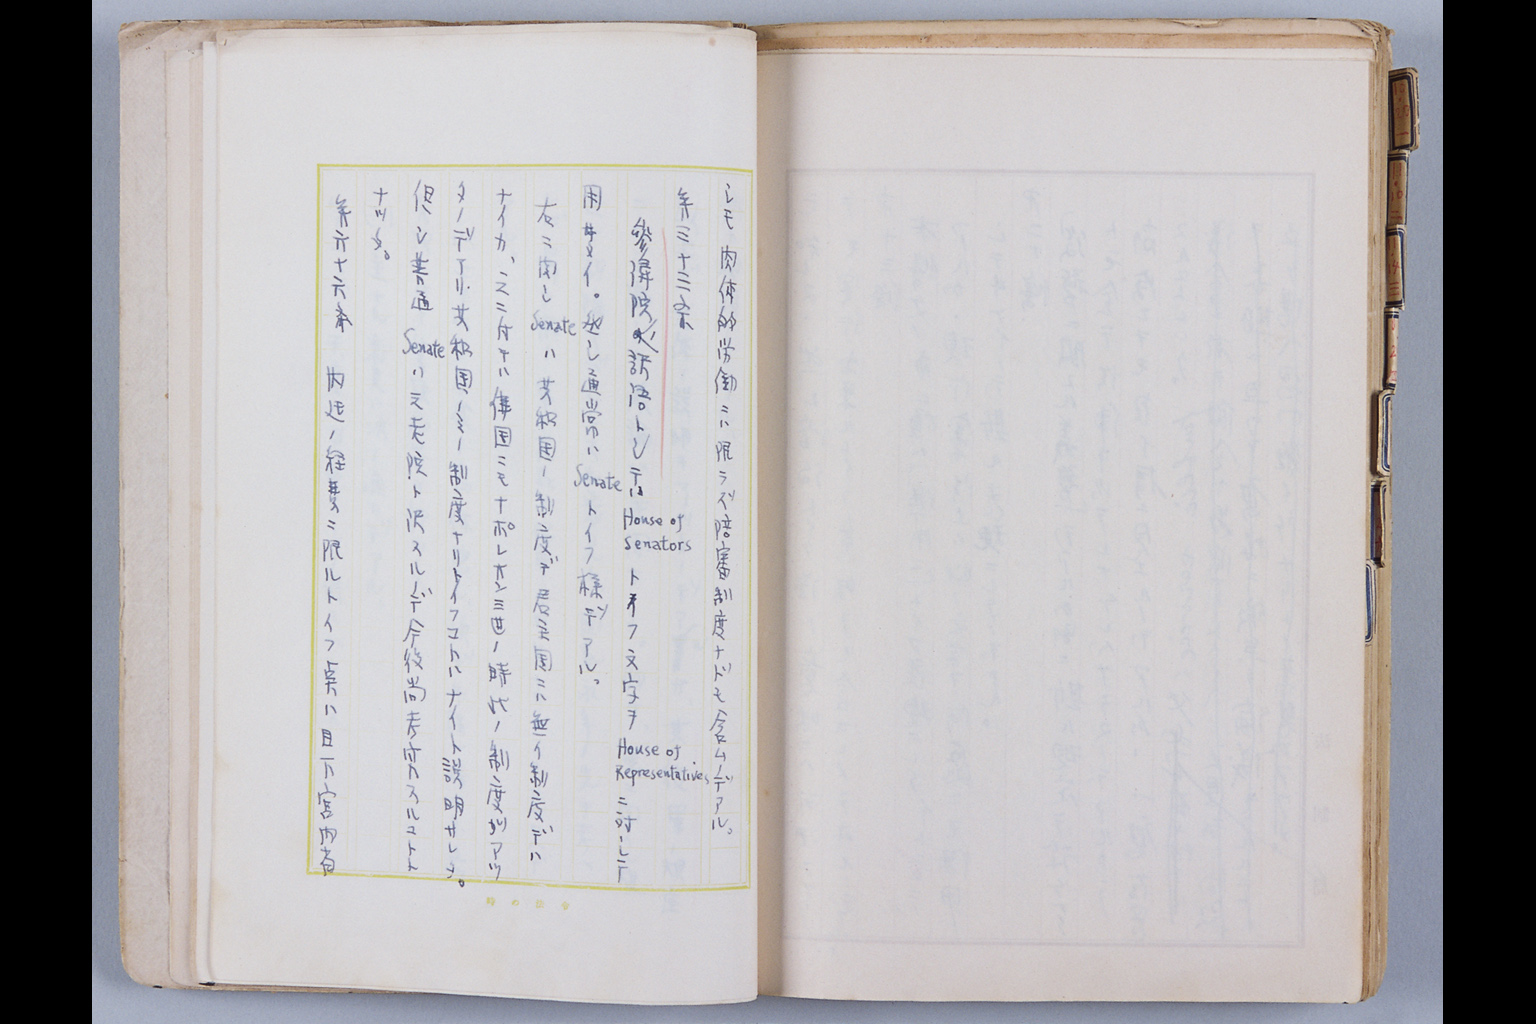 シモ肉体的労働ニハ限ラズ陪審制度ナドモ含ムノデアル。
第三十三条
参議院ハ訳語トシテハ House of Senators トイフ文字ヲ House of Representatives ニ対シテ
用ヰタイ。然シ通常ハ Senate トイフ様デアル。
右ニ関シ Senate ハ共和国ノ制度デ君主国ニハ無イ制度デハ
ナイカ、之ニ付テハ佛国ニモナポレオン三世ノ時代ノ制度ガアツ
タノデアリ、共和国ノミノ制度ナリトイフコトハナイト説明サレタ。
但シ普通 Senate ハ元老院ト訳スルノデ今後尚考究スルコトト
ナツタ。
第六十六条 内廷ノ経費ニ限ルトイフ点ハ目下宮内省